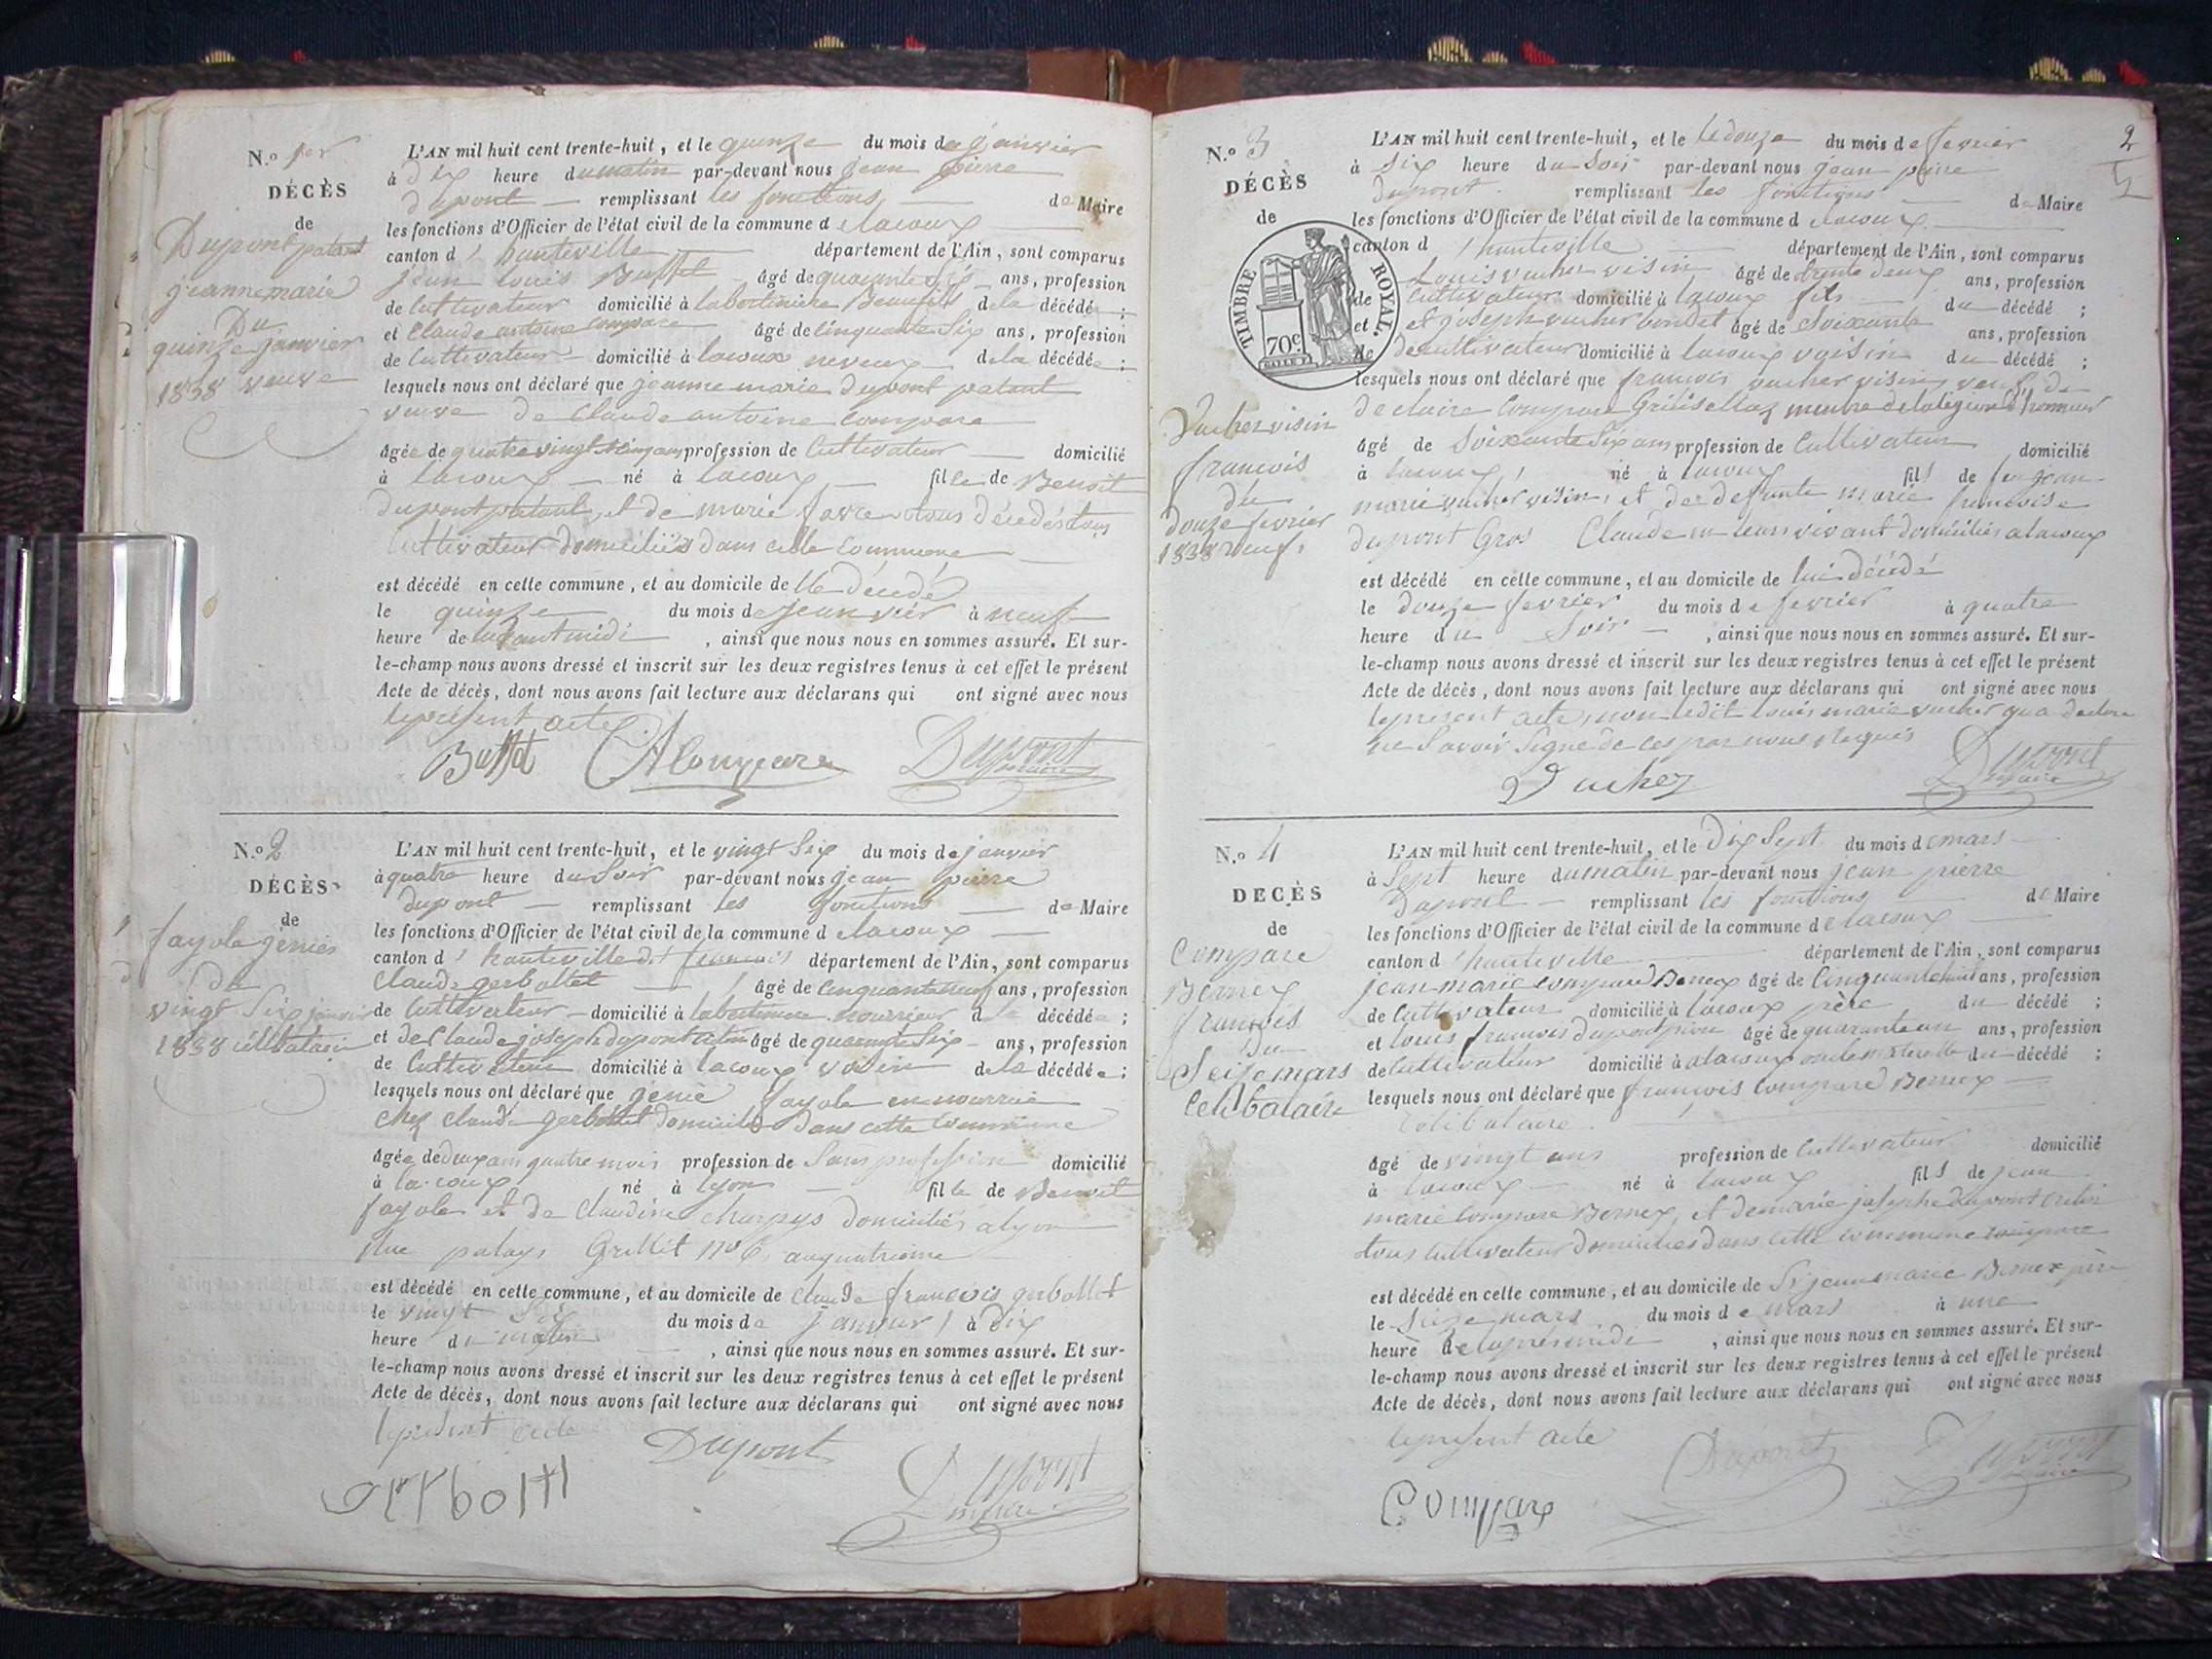 N.º 1er
DÉCÈS
de
Dupont patant
jeanne marie
Du
quinze janvier
1838 veuve
L'AN mil huit cent trente-huit, et le quinze du mois de janvier
à dix heure du matin par-devant nous jean pierre
dupont remplissant les fonctions de Maire
les fonctions d'Officier de l'état civil de la commune de lacoux
canton d'hauteville département de l'Ain, sont comparus
jean louis Buffet âgé de quarante six ans, profession
de Cultivateur domicilié à labertinière Beaufils de la décédée ;
et Claude antoine Compare âgé de Cinquante Six ans, profession
de Cultivateur domicilié à lacoux neveux de la décédée ;
lesquels nous ont déclaré que jeanne marie dupont patant
veuve de Claude antoine Compare
âgée de quatre vingt ans profession de Cultivateur domicilié
à lacoux né à lacoux fille de Benoit
dupont patant, et de marie favre tous décédés tous
Cultivateur domiciliés dans cette Commune
est décédé en cette commune, et au domicile de lle décédé
le quinze du mois de jeanvier à neuf
heure de avant midi, ainsi que nous nous en sommes assuré. Et sur-
le-champ nous avons dressé et inscrit sur les deux registres tenus à cet effet le présent
Acte de décès, dont nous avons fait lecture aux déclarans qui ont signé avec nous
le présent acte
Buffet CA Compare Dupont maire
N.º 2
DÉCÈS
de
fayole génies
du
vingt Six janvier
1838 célibataire
L'AN mil huit cent trente-huit, et le vingt Six du mois de janvier
à quatre heure du Soir par-devant nous jean pierre
dupont remplissant les fonctions de Maire
les fonctions d'Officier de l'état civil de la commune de lacoux
canton d'hauteville département de l'Ain, sont comparus
Claude gerbollet âgé de Cinquante neuf ans, profession
de Cultivateur domicilié à labertiniere nourricur de la décédée ;
et de Claude joseph dupont âgé de quarante Six ans, profession
de Cultivateur domicilié à lacoux voisin de la décédée ;
lesquels nous ont déclaré que génie fayole en nourrice
chez Claude gerbollet domicilié dans cette Commune
âgée de deux ans quatre mois profession de Sans profession domicilié
à lacoux né à lyon fille de Benoit
fayole et de Claudine charpys domiciliés à lyon
Rue palays Grillet no 6 au quatrieme
est décédé en cette commune, et au domicile de Claude françois gerbollet
le vingt Six du mois de janvier à dix
heure du matin, ainsi que nous nous en sommes assuré. Et sur-
le-champ nous avons dressé et inscrit sur les deux registres tenus à cet effet le présent
Acte de décès, dont nous avons fait lecture aux déclarans qui ont signé avec nous
le présent acte
Dupont
Dupont maire
2
N.º 3
DÉCÈS
de
TIMBRE ROYAL.
70c
Vucher visin
francois
du
douze fevrier
1838 veuf
L'AN mil huit cent trente-huit, et le le douze du mois de fevrier
à Six heure du Soir par-devant nous jean peire
dupont remplissant les fonctions de Maire
les fonctions d'Officier de l'état civil de la commune de lacoux
canton d'hauteville département de l'Ain, sont comparus
Louis vucher visin âgé de trente deux ans, profession
de Cultivateur domicilié à lacoux fils du décédé ;
et et joseph vucher boudet âgé de Soixante ans, profession
de de cultivateur domicilié à lacoux voisin du décédé ;
lesquels nous ont déclaré que francois vucher visin veuf de
de claire Compare membre de la légion d'honneur
âgé de Soixante Six ans profession de Cultivateur domicilié
à lacoux né à lacoux fils de feu jean
marie vucher visin, et de defunte marie francoise
dupont Gros de leur vivant domiciliés a lacoux
est décédé en cette commune, et au domicile de lui décédé
le douze fevrier du mois de fevrier à quatre
heure du Soir, ainsi que nous nous en sommes assuré. Et sur-
le-champ nous avons dressé et inscrit sur les deux registres tenus à cet effet le présent
Acte de décès, dont nous avons fait lecture aux déclarans qui ont signé avec nous
le present acte, non ledit louis marie vucher qui a declare
ne Savoir Signe de ces par nous requis
Vucher Dupont maire
N.º 4
DECÈS
de
Compare
Bernex
francois
Du
Seize mars
Celibataire
L'AN mil huit cent trente-huit, et le Dix Sept du mois de mars
à Sept heure du matin par-devant nous jean pierre
Dupont remplissant les fonctions de Maire
les fonctions d'Officier de l'état civil de la commune de lacoux
canton d'hauteville département de l'Ain, sont comparus
jean marie Compare Bernex âgé de Cinquante huit ans, profession
de Cultivateur domicilié à lacoux père du décédé ;
et louis francois dupont pion âgé de quarante un ans, profession
de Cultivateur domicilié à a lacoux oncle maternelle du décédé ;
lesquels nous ont déclaré que francois Compare Bernex
Celibataire
âgé de vingt ans profession de Cultivateur domicilié
à lacoux né à lacoux fils de jean
marie Compare Bernex, et de marie josephe dupont
tous Cultivateur domiciliés dans cette commune
est décédé en cette commune, et au domicile de Sr jean marie Bernex père
le Seize mars du mois de mars à une
heure de l'après midi, ainsi que nous nous en sommes assuré. Et sur-
le-champ nous avons dressé et inscrit sur les deux registres tenus à cet effet le présent
Acte de décès, dont nous avons fait lecture aux déclarans qui ont signé avec nous
le présent acte
Compare Dupont Dupont maire